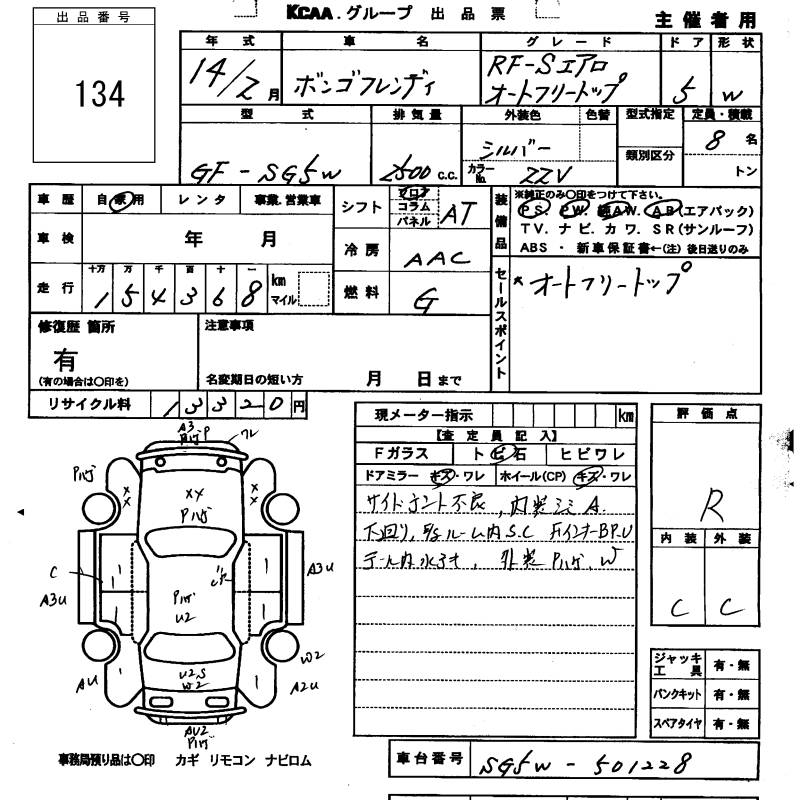 KCAA.グループ 出品票
主催者用
出品番号
134
年式 車名 グレード ドア 形状
14/2月 ボンゴフレンディ RF-Sエアロ オートフリートップ 5 W
型式 排気量 外装色 色替 型式指定 定員・積載
GF-SG5W 2500c.c. シルバー 8名
カラーNo. 22V 類別区分 トン
車歴 自家用 レンタ 事業.営業車
シフト フロア コラム パネル AT
装備品 ※純正のみ〇印をつけて下さい。
PS. PW. 純AW. AB(エアバック)
TV. ナビ. カワ. SR(サンルーフ)
ABS ・ 新車保証書←(注) 後日送りのみ
車検 年 月
冷房 AAC
走行 十万 万 千 百 十 一 km マイル
154368
燃料 G
セールスポイント
*オートフリートップ
修復歴 箇所
有
(有の場合は〇印を)
注意事項
名変期日の短い方 月 日まで
リサイクル料 13320円
現メーター指示 km
【査定員記入】
Fガラス トビ石 ヒビワレ
ドアミラー キズ・ワレ ホイール(CP) キズ・ワレ
サイドオント不良, 内装シミA.
下回り, E/gルーム内S.C FインナーBP.U
テール内水入り, 外装Pハゲ, W
評価点
R
内装 外装
C C
A3
Pハゲ P
ワレ
Pハゲ
XX
XX
XX
Pハゲ
C
A3U
A3U
Pハゲ
U2
AU
U2S
W2
W2
A2U
AU2
Pハゲ
ジャッキ工具 有・無
パンクキット 有・無
スペアタイヤ 有・無
事務局預り品は〇印 カギ リモコン ナビロム
車台番号 SG5W-501228